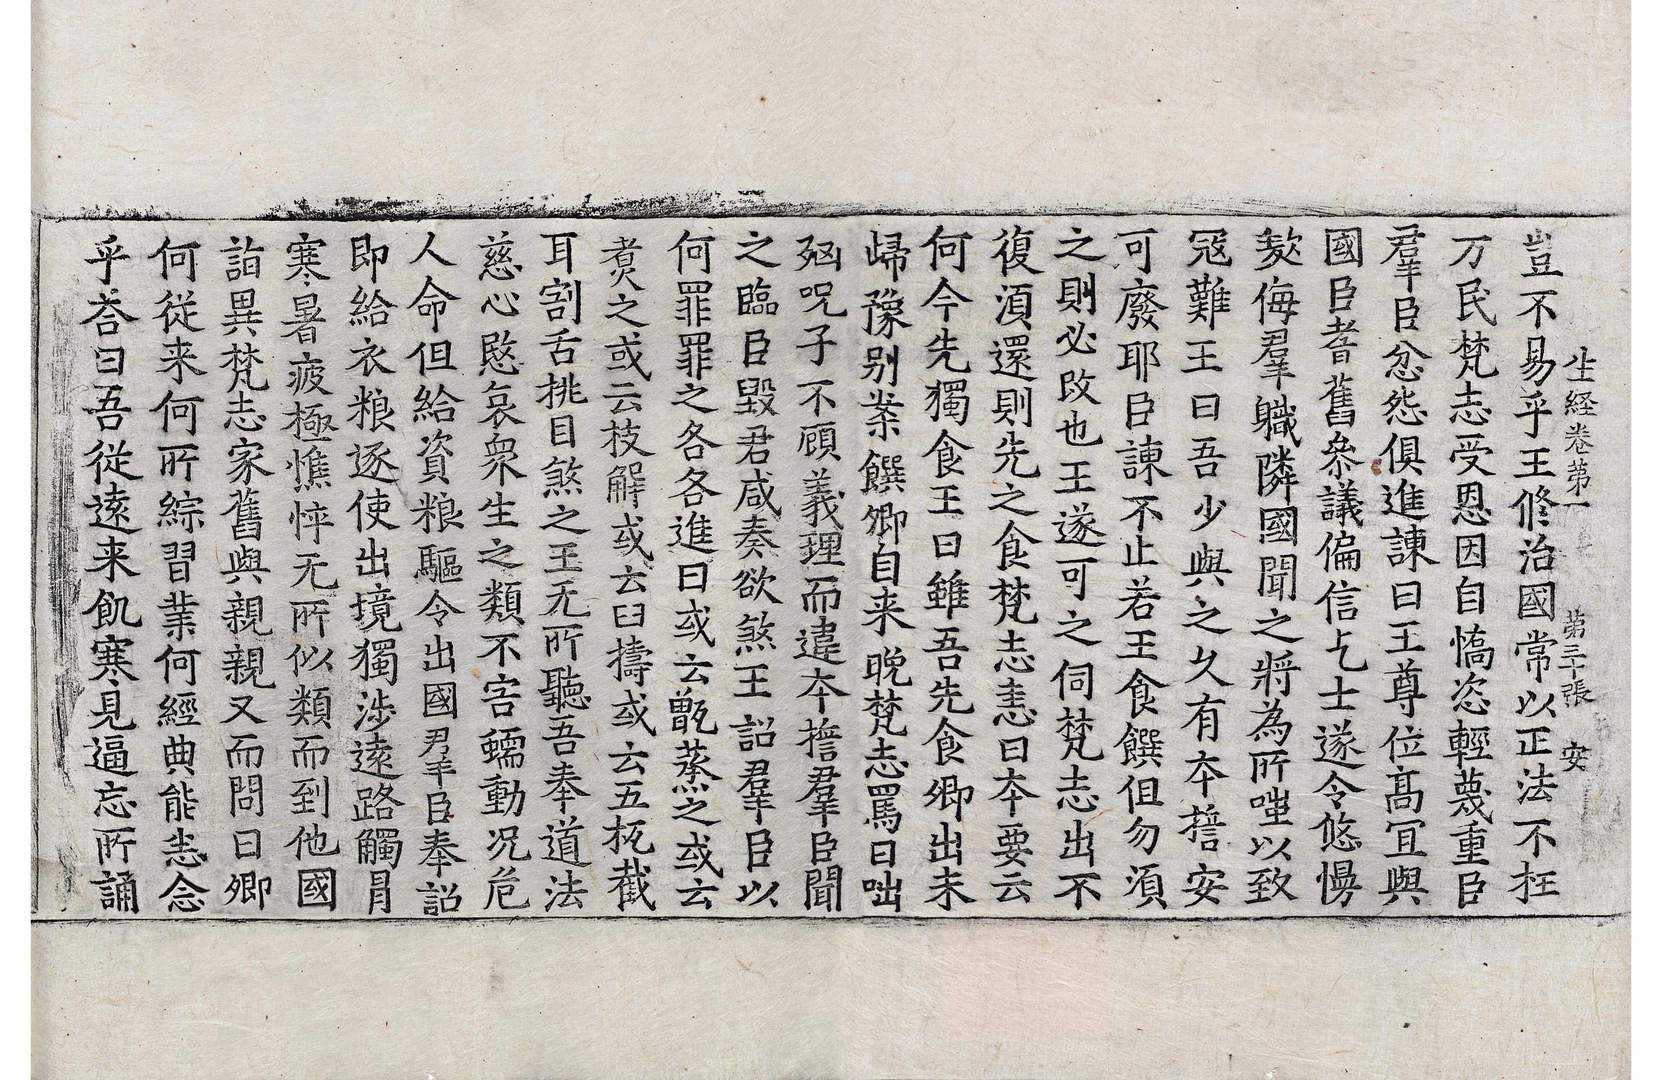 生経卷苐一　苐三十張　安
豈不易乎王修治國常以正法不枉
万民梵志受恩因自憍恣輕蔑重臣
羣臣忿怨俱進諌曰王尊位高冝與
國臣耆舊叅議偏信乞士遂令悠慢
欺侮羣職隣國聞之將為所嗤以致
冦難王曰吾少與之久有夲誓安
可廢耶臣諌不止若王食饌但勿湏
之則必改也王遂可之伺梵志出不
復湏還則先之食梵志恚曰夲要云
何今先獨食王曰雖吾先食卿出未
歸豫别案饌卿自来晚梵志罵曰咄
㐫呪子不顧義理而違夲誓羣臣聞
之臨臣毀君咸奏欲煞王詔羣臣以
何罪罪之各各進曰或云甑蒸之或云
煑之或云枝解或云臼擣或云五杌截
耳割舌挑目煞之王无所聽吾奉道法
慈心愍哀衆生之類不害蠕動况危
人命但給資粮驅令出國羣臣奉詔
即給衣粮逐使出境獨涉遠路觸冐
寒暑疲極憔悴无所似類而到他國
詣異梵志家舊與親親又而問曰卿
何從来何所綜習業何經典能悉念
乎荅曰吾從遠来飢寒見逼忘所誦